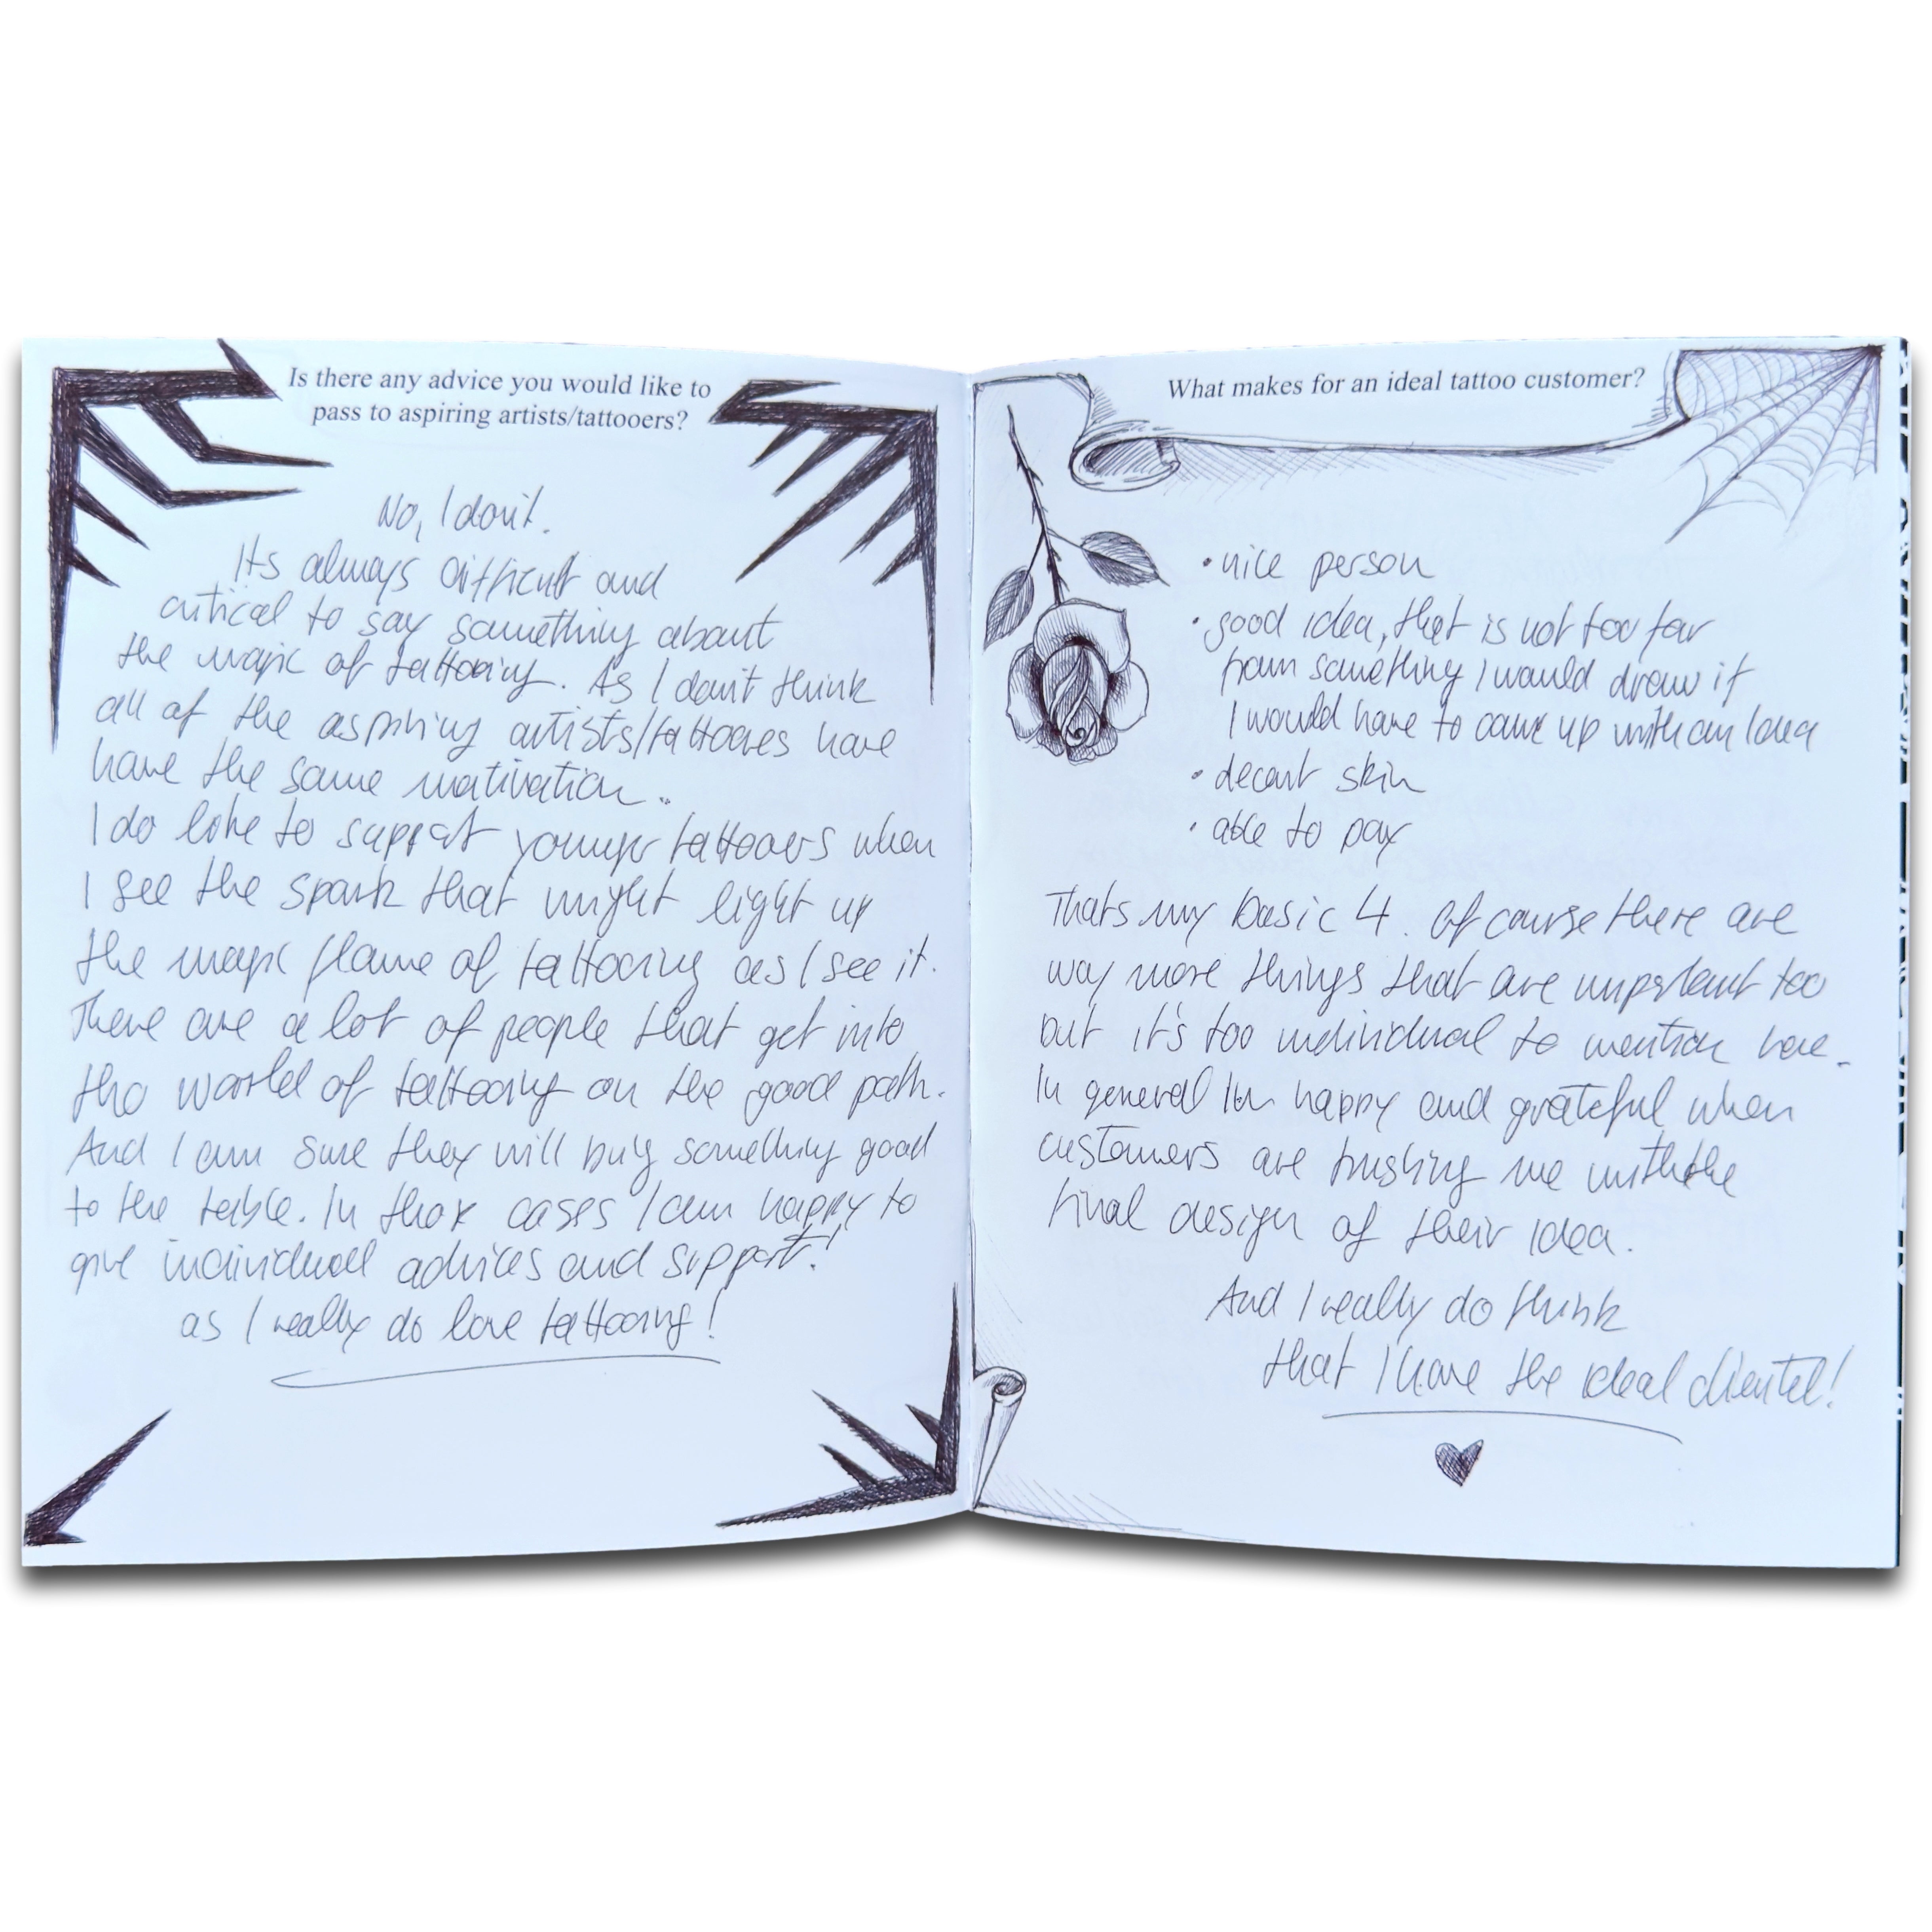 Is there any advice you would like to
pass to aspiring artists/tattooers?
No, I don't.
Its always difficult and
critical to say something about
the magic of tattooing. As I don't think
all of the aspiring artists/tattooers have
have the same motivation.
I do like to support younger tattooers when
I see the spark that might light up
the magic flame of tattooing as I see it.
There are a lot of people that get into
the world of tattooing on the good path.
And I am sure they will bring something good
to the table. In those cases I am happy to
give individual advices and support!
as I really do love tattooing!
What makes for an ideal tattoo customer?
• nice person
• good idea, that is not too far
from something I would draw if
I would have to come up with an Idea
• decent skin
• able to pay
Thats my basic 4. Of course there are
way more things that are important too
but it's too individual to mention here.
In general Im happy and grateful when
customers are trusting me with the
final design of their idea.
And I really do think
that I have the ideal clientel!